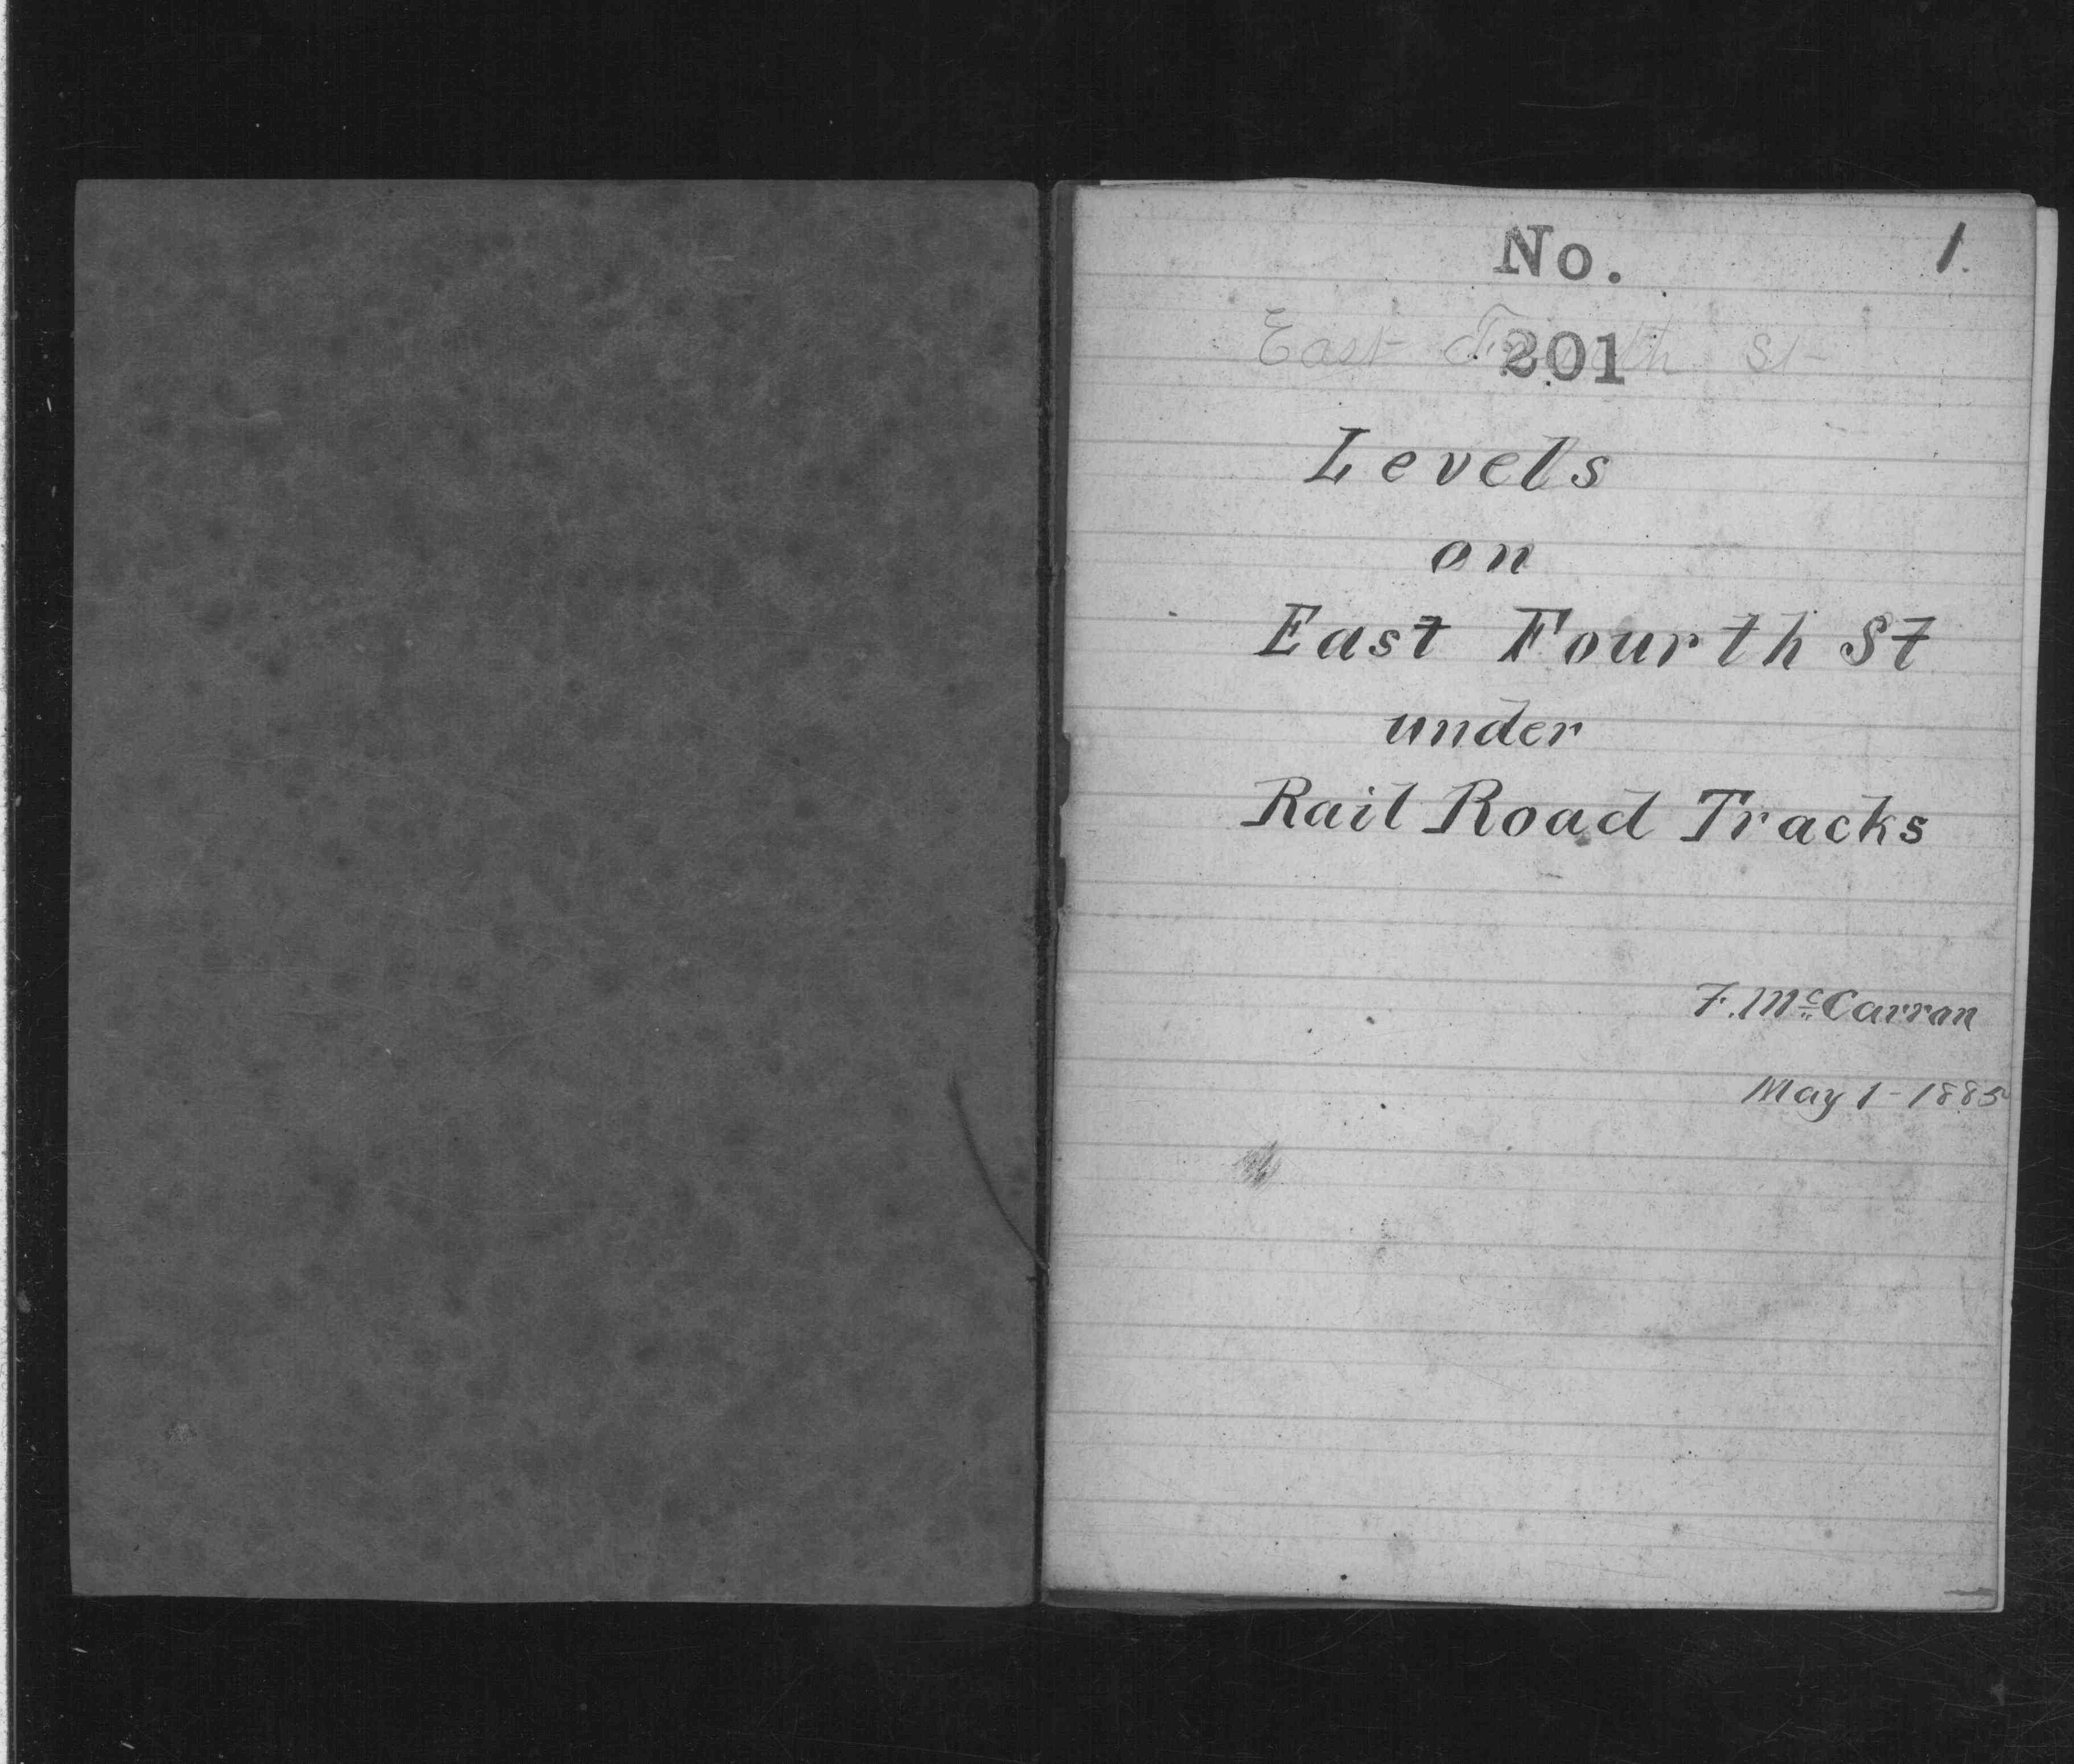 No. 1.
East Fourth St
201
Levels
on
East Fourth St
under
Rail Road Tracks
F. McCarran
May 1 - 1885